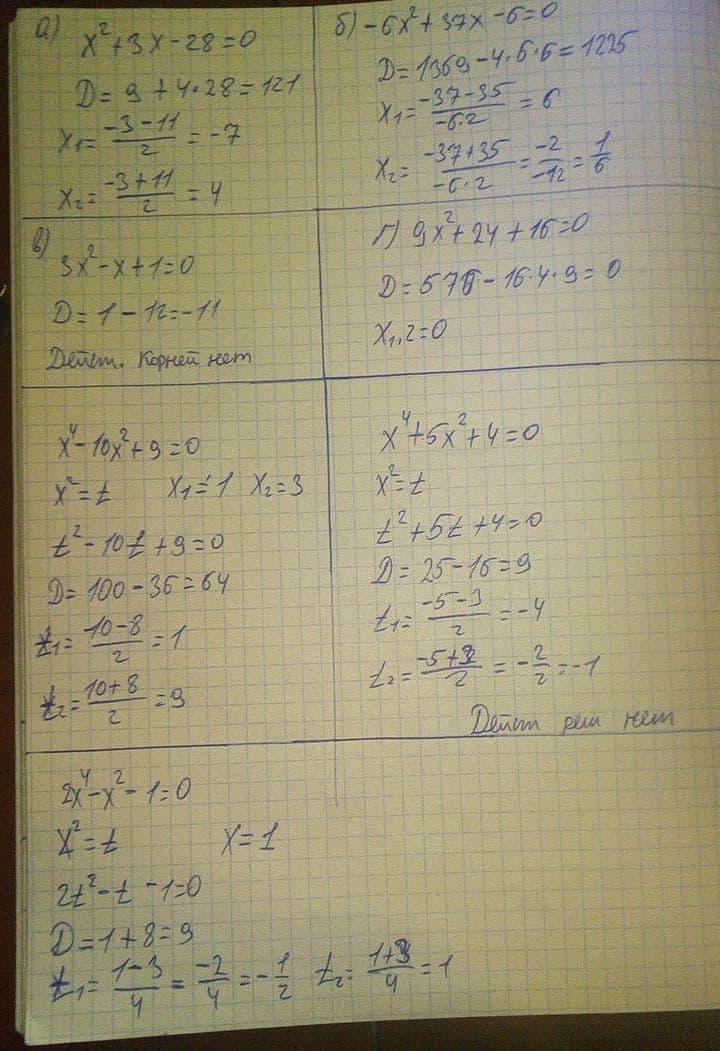 а)
x²+3x-28=0
D=9+4·28=121
x₁=(-3-11)/2=-7
x₂=(-3+11)/2=4
б) -6x²+37x-6=0
D=1369-4·6·6=1225
x₁=(-37-35)/(-6·2)=6
x₂=(-37+35)/(-6·2)=(-2)/(-12)=1/6
в)
3x²-x+1=0
D=1-12=-11
Дейст. Корней нет
г) 9x²+24+16=0
D=576-16·4·9=0
x₁,₂=0
x⁴-10x²+9=0
x²=t x₁=1 x₂=3
t²-10t+9=0
D=100-36=64
t₁=(10-8)/2=1
t₂=(10+8)/2=9
x⁴+5x²+4=0
x²=t
t²+5t+4=0
D=25-16=9
t₁=(-5-3)/2=-4
t₂=(-5+3)/2=-2/2=-1
Дейст реш нет
2x⁴-x²-1=0
x²=t x=1
2t²-t-1=0
D=1+8=9
t₁=(1-3)/4=(-2)/4=-1/2 t₂=(1+3)/4=1